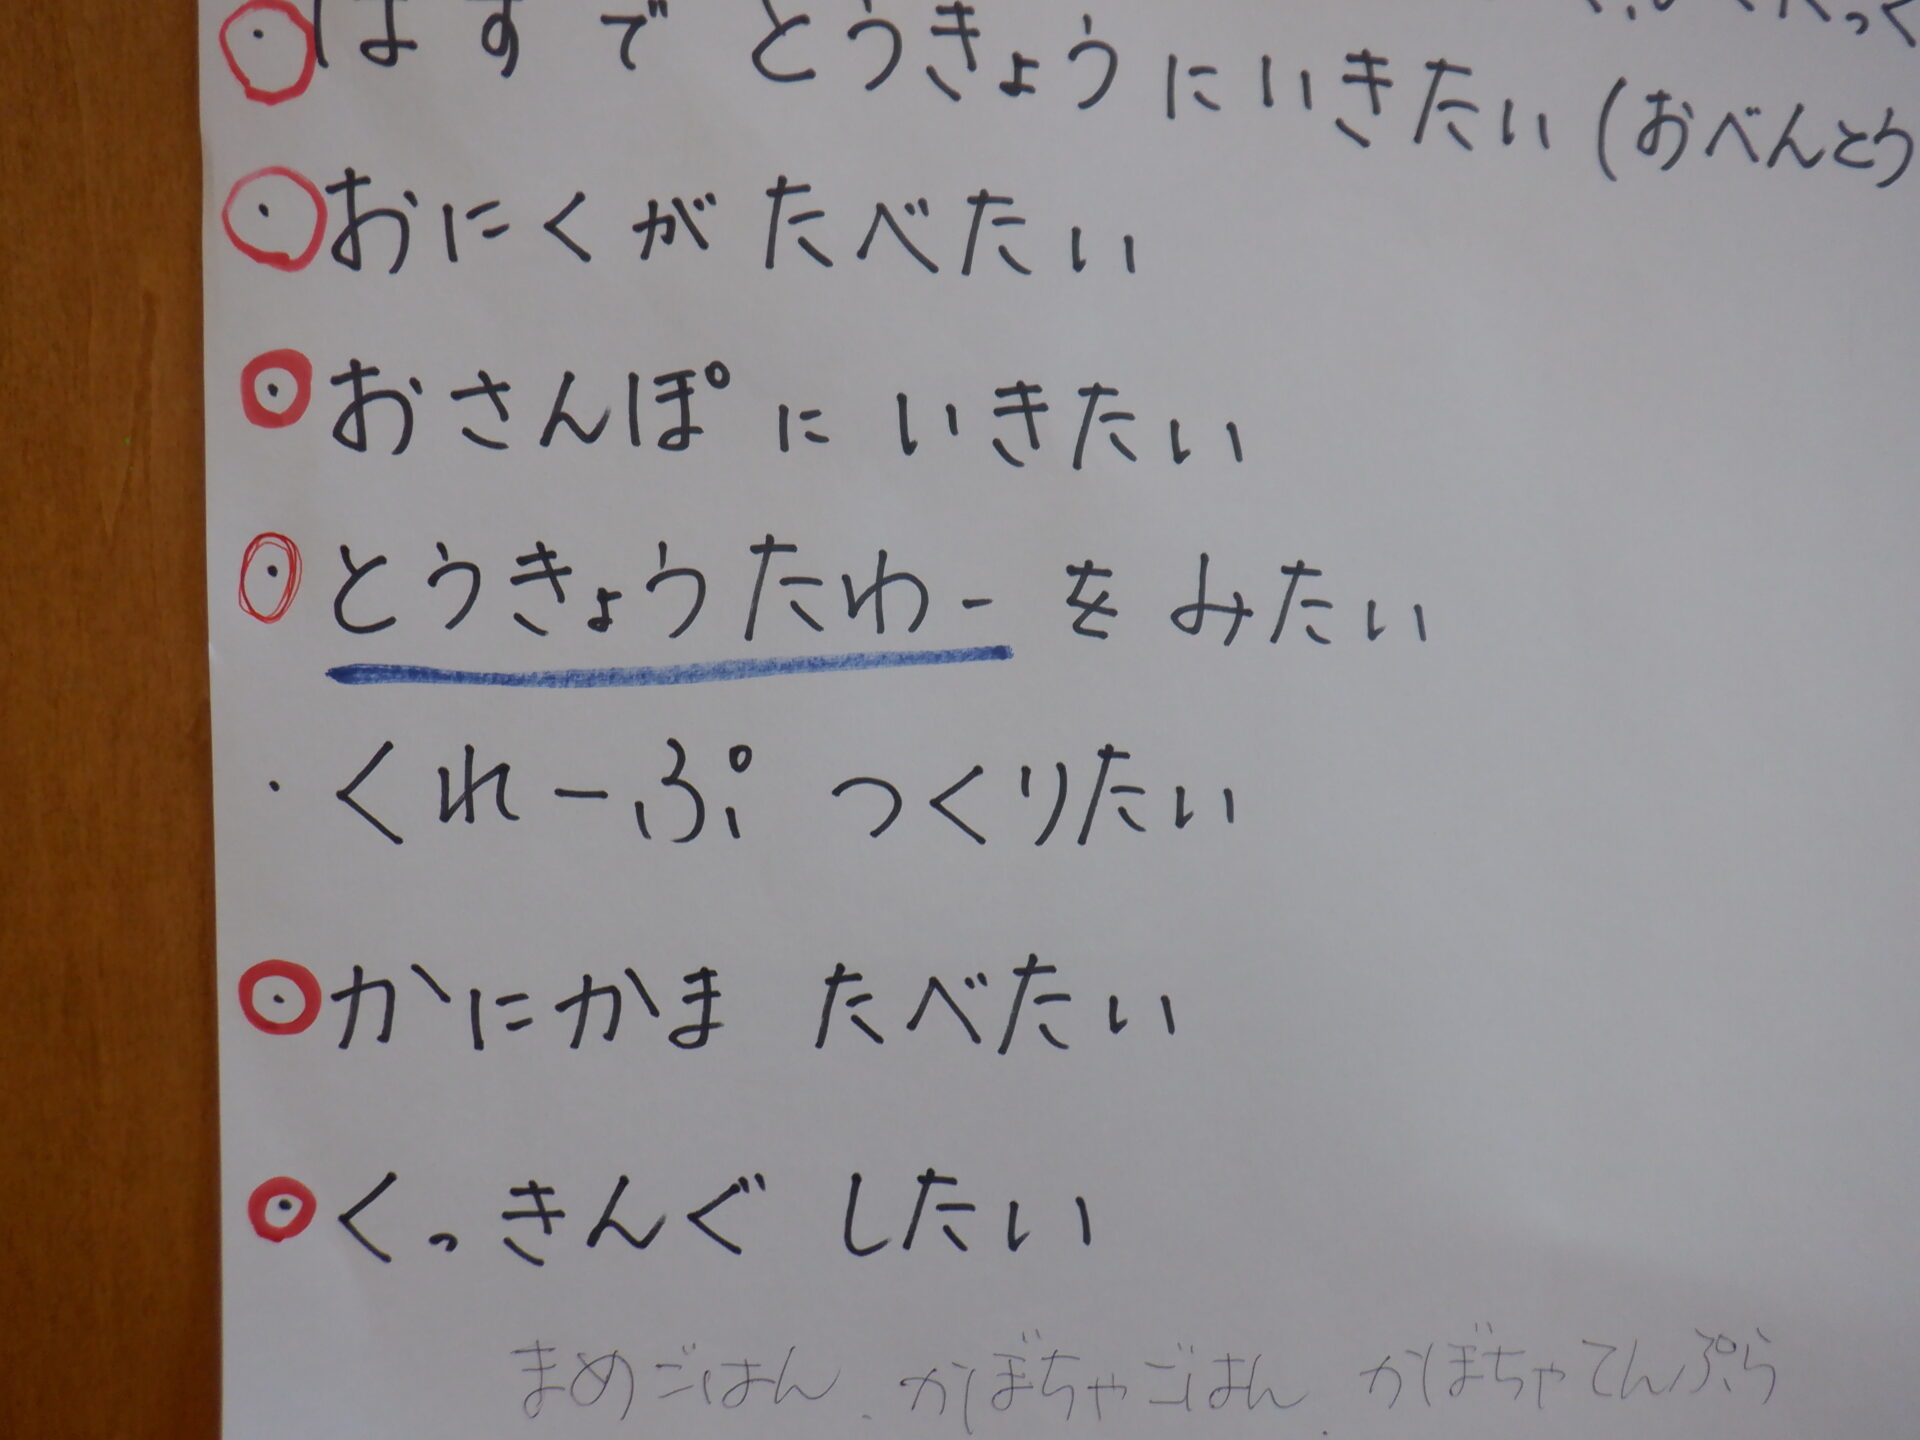 ・ばすで とうきょうにいきたい (おべんとう
・おにくが たべたい
・おさんぽに いきたい
・とうきょうたわーを みたい
・くれーぷ つくりたい
・かにかま たべたい
・くっきんぐ したい
まめごはん、かぼちゃごはん、かぼちゃてんぷら